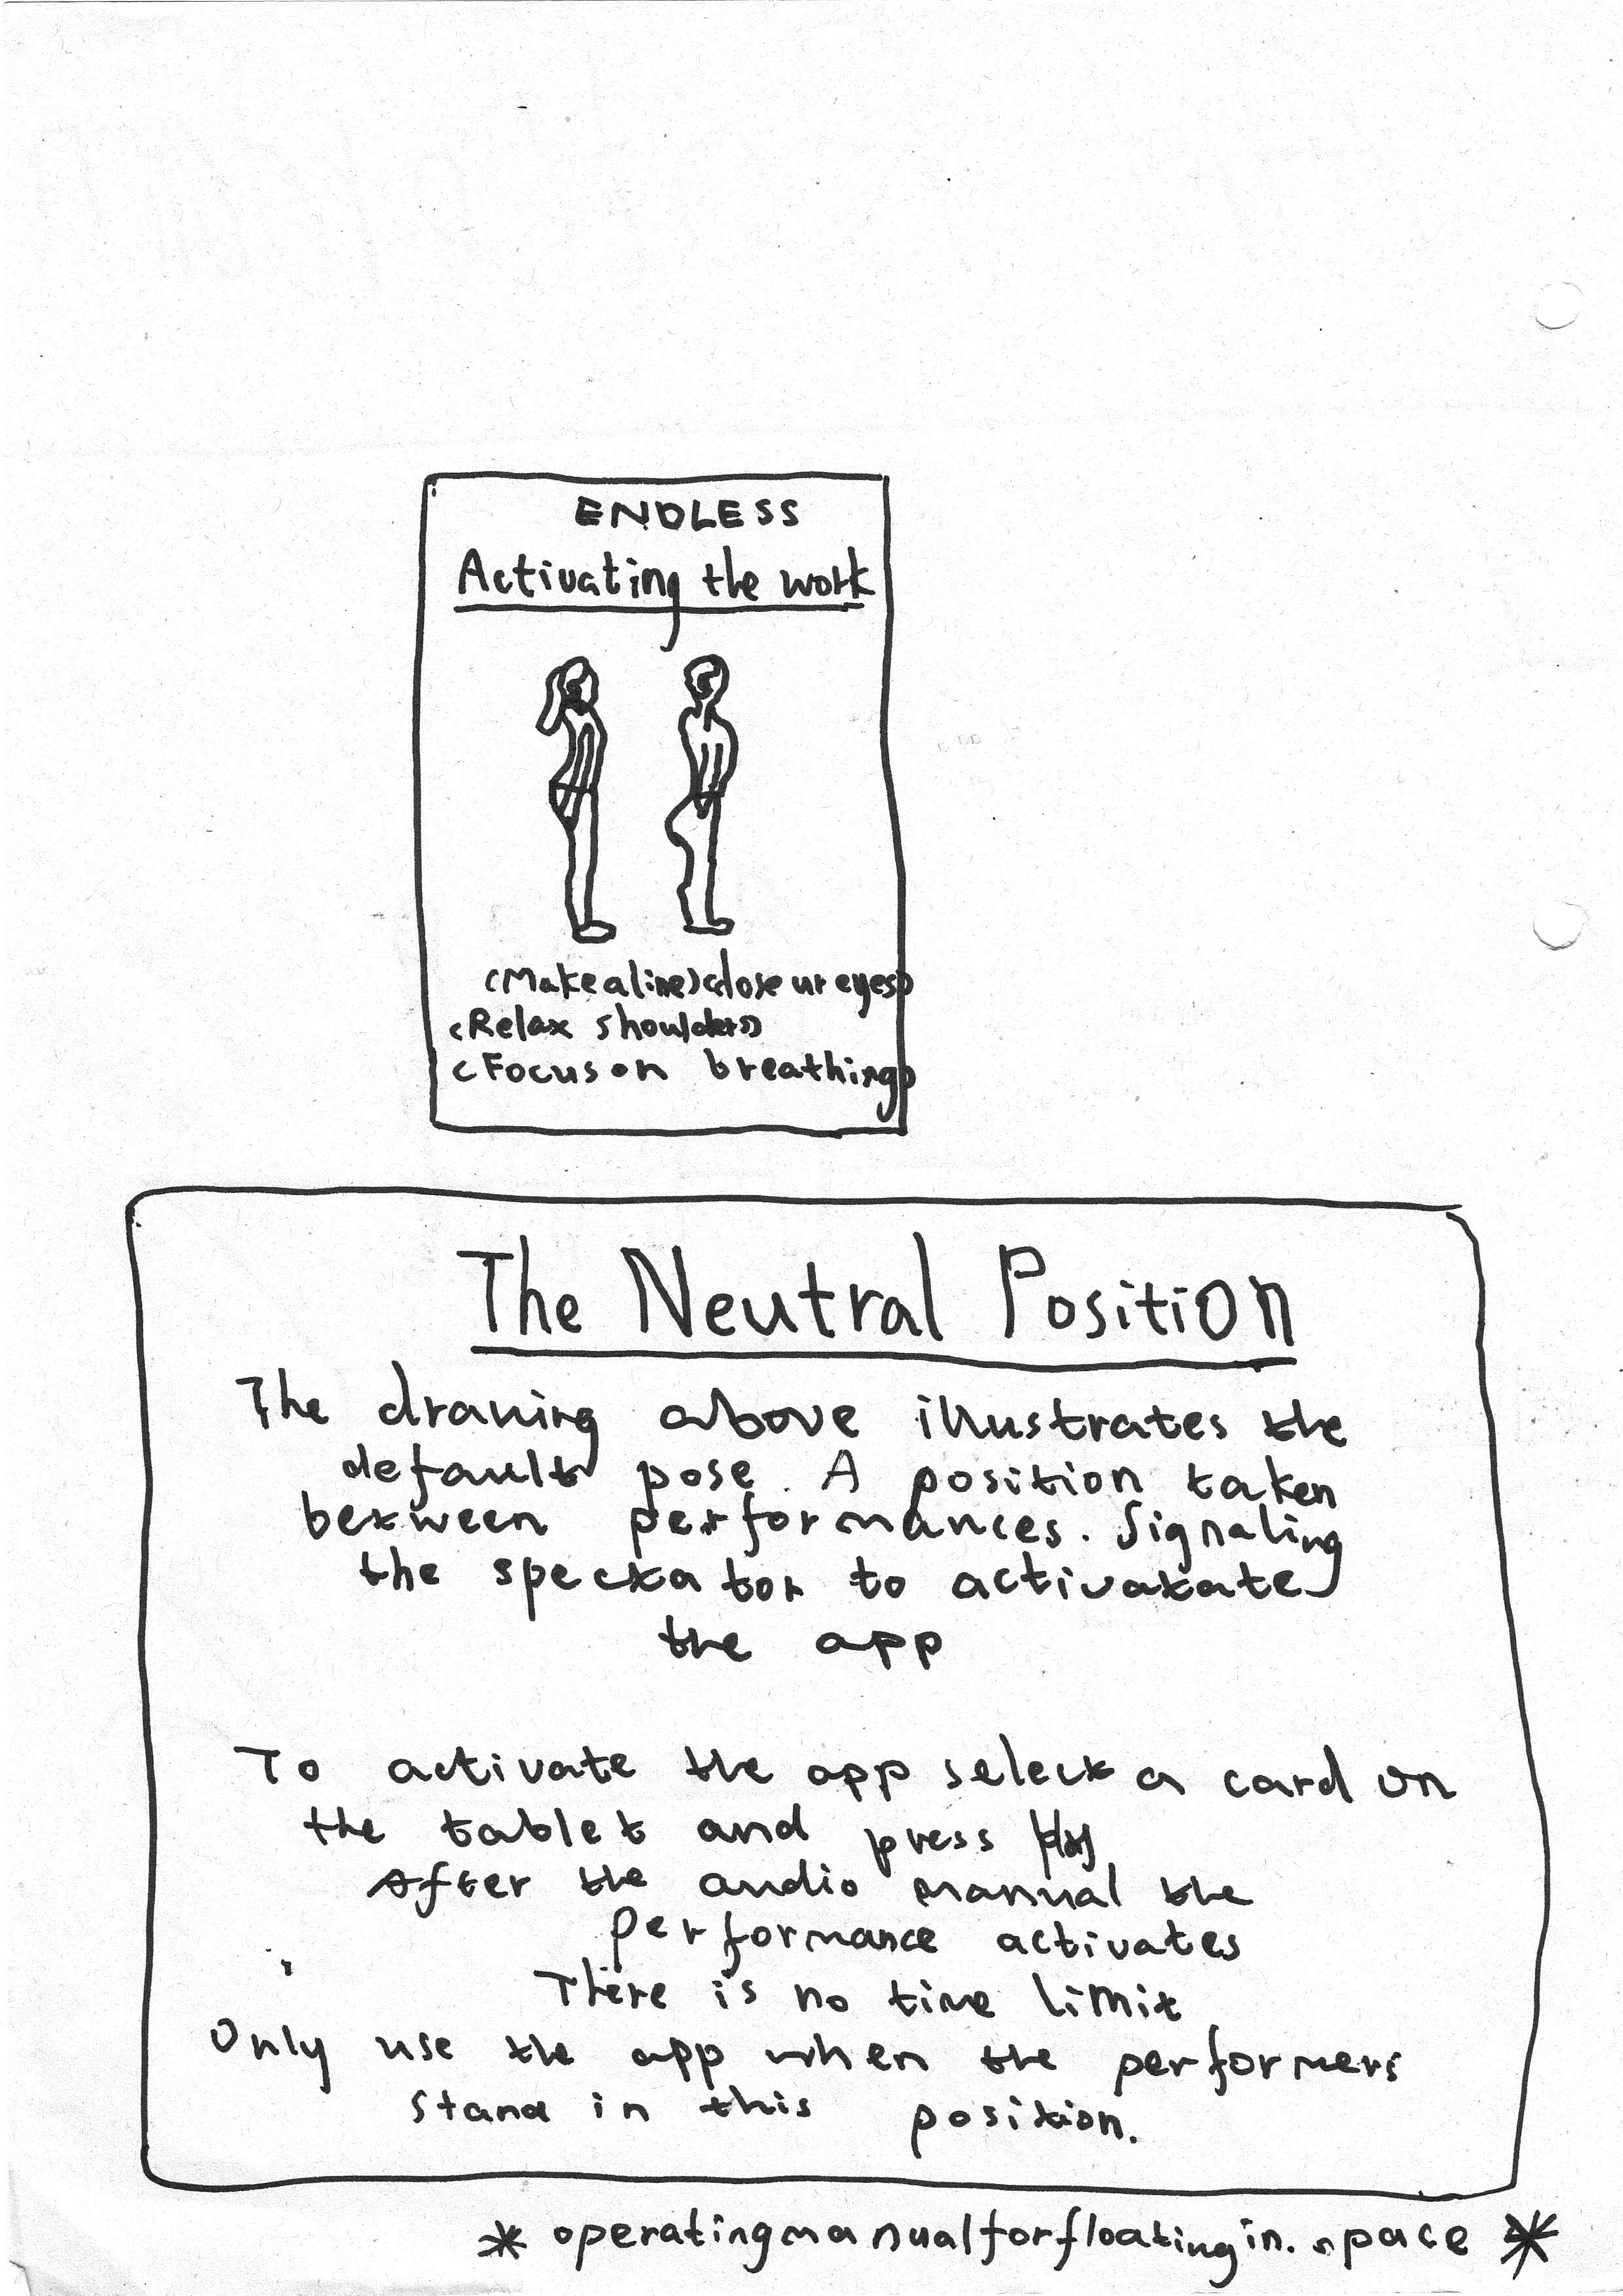 ENDLESS
Activating the work
(Make a line) (close ur eyes)
(Relax shoulders)
(Focus on breathing)
The Neutral Position
The drawing above illustrates the
default pose. A position taken
between performances. Signaling
the spectator to activatate
the app
To activate the app select a card on
the tablet and press
After the audio manual the
performance activates
There is no time limit
Only use the app when the performers
stand in this position.
* operatingmanualforfloatingin.space *